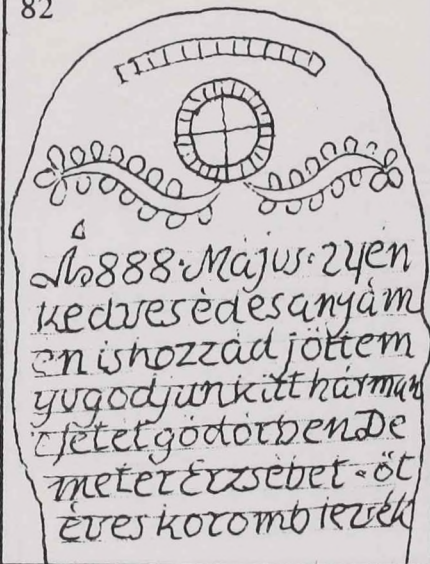 82
1888·Május·24én
kedves èdesanyám
én ishozzád jöttem
yugodjunkitt hárman
setét gödörben De
meter Erzsébet - öt
éves korombie